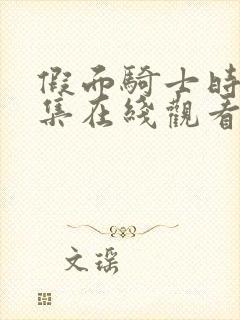 假面騎士時
集在綫觀看
文琛